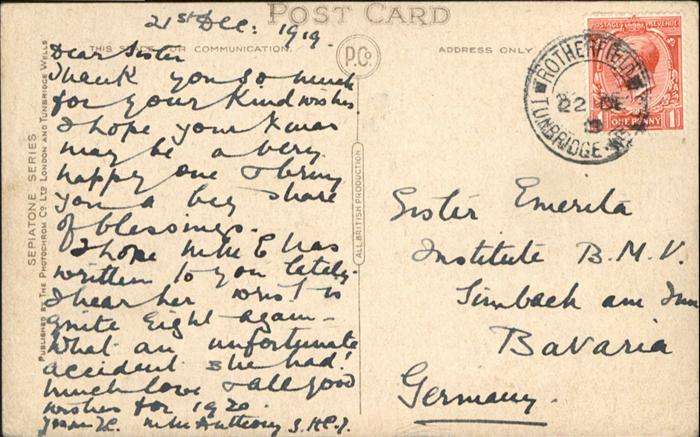 POST CARD
21st Dec: 1919.
THIS SPACE FOR COMMUNICATION.
P.Co
ADDRESS ONLY
Dear Sister
Thank you so much
for your kind wishes
I hope your Xmas
may be a very
happy one & bring
you a big share
of blessings.
I hope M.M. E has
written to you lately.
I hear her wrist is
quite right again –
What an unfortunate
accident she had!
Much love & all good
wishes for 1920.
M. M. Anthony
SEPIATONE SERIES
PUBLISHED BY THE PHOTOCHROM CO. LTD LONDON AND TUNBRIDGE WELLS
ALL BRITISH PRODUCTION
ROTHERFIELD
22 DE
19
TUNBRIDGE
POSTAGE REVENUE
ONE PENNY 1
Sister Emerita
Institute B.M.V.
Simbach am Inn
Bavaria
Germany.